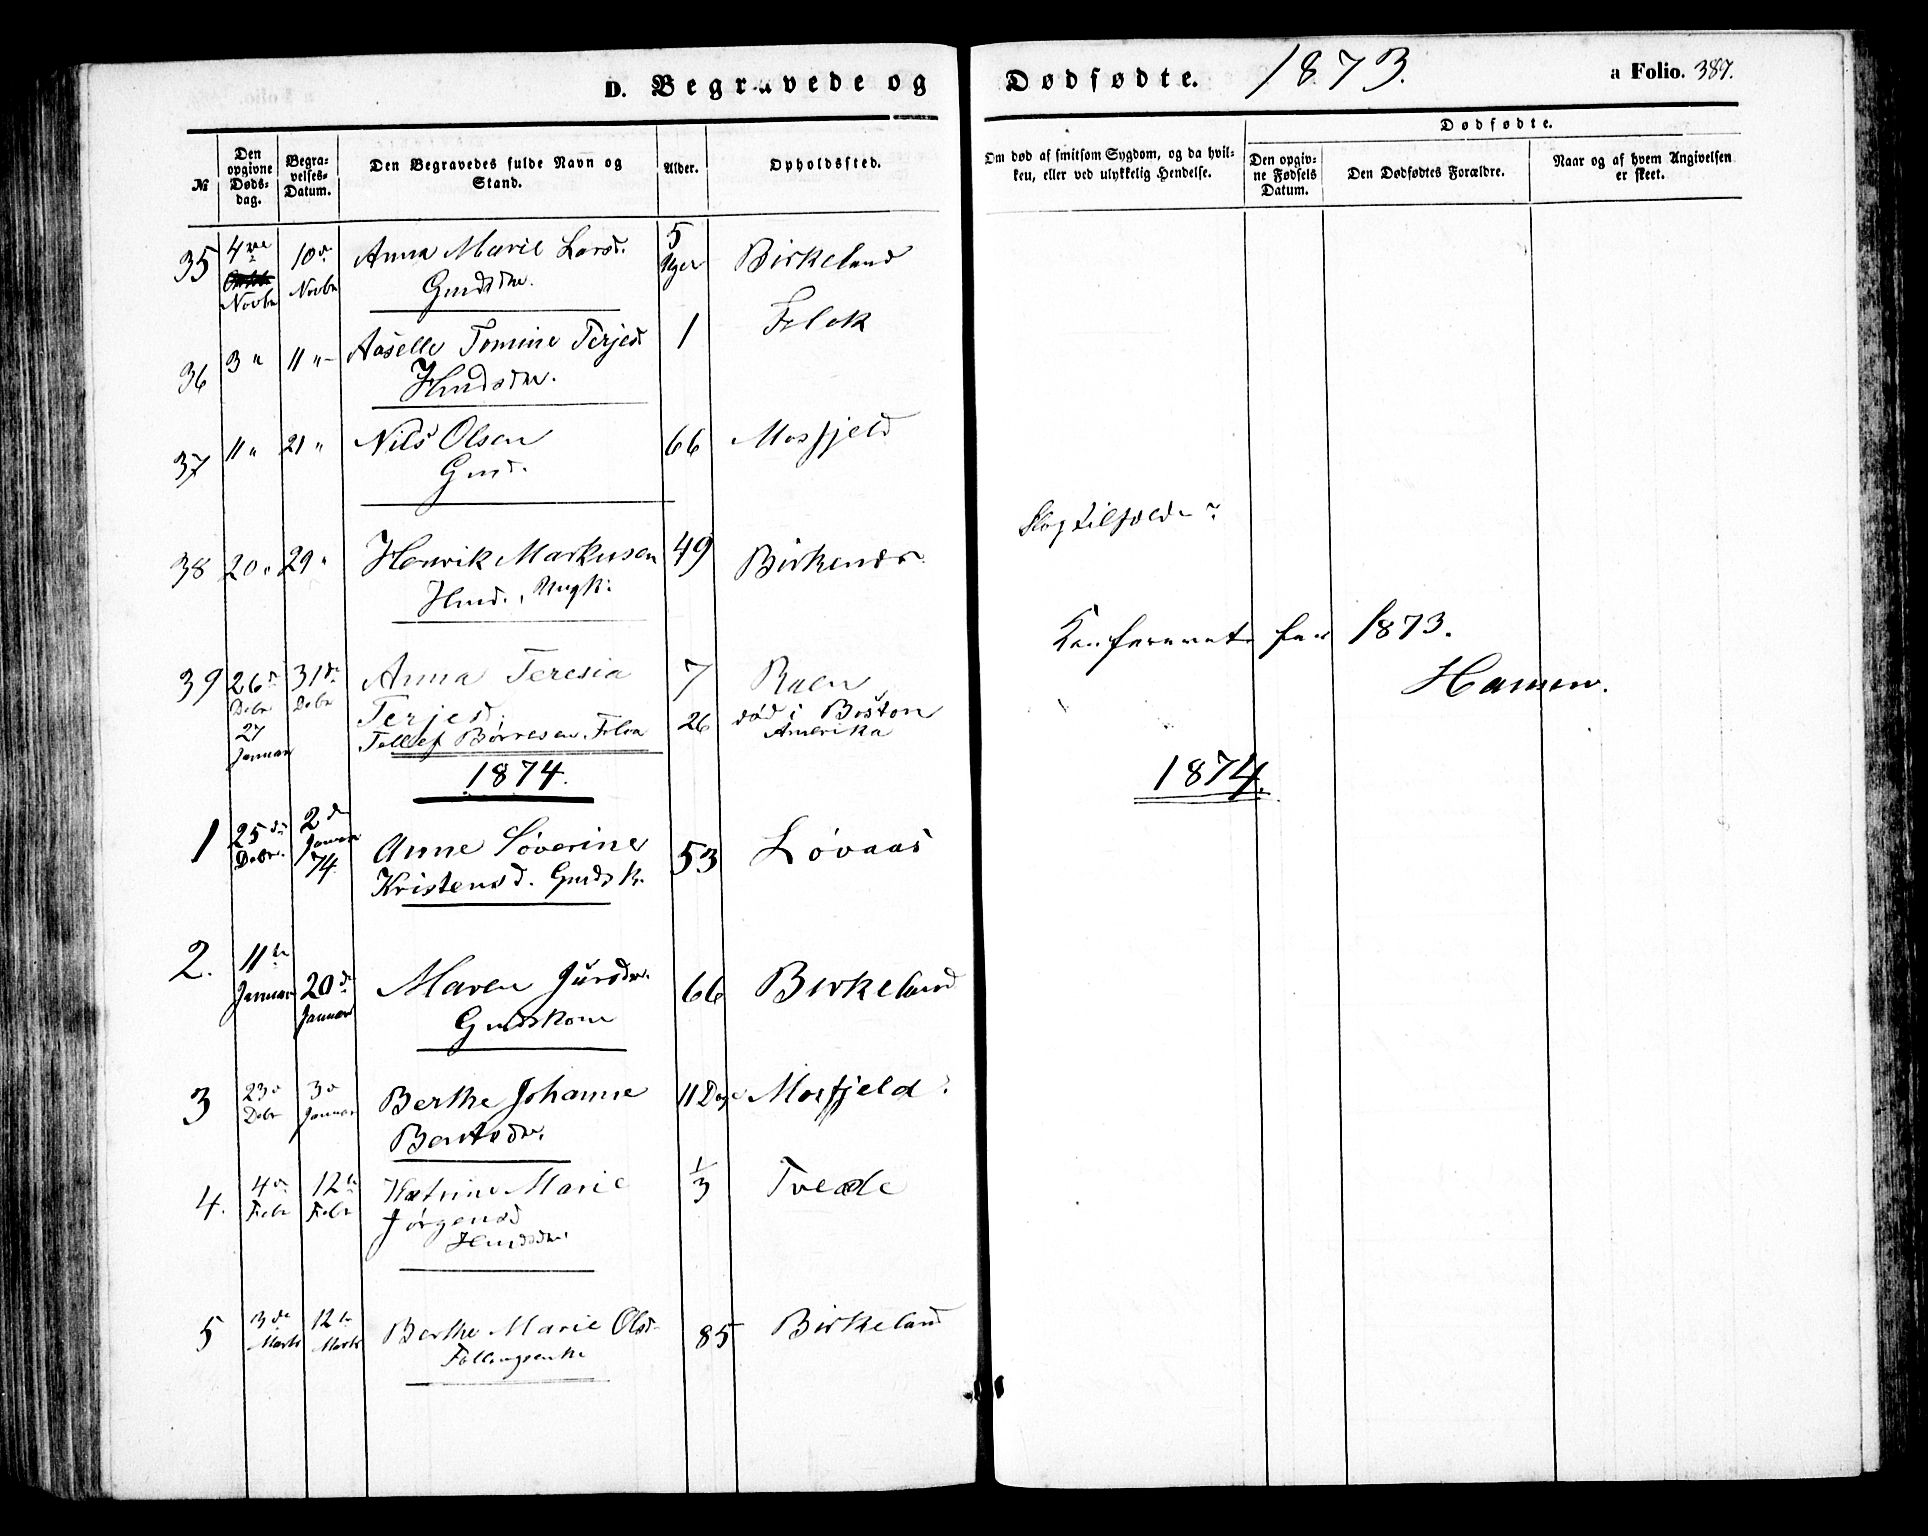 D. Begravede og Dødfødte. 1873. a Folio. 387.
Dødfødte.
No
Den opgivne Døds-dag.
Begra-velses-Datum.
Den Begravedes fulde Navn og Stand.
Alder.
Opholdssted.
Om død af smitsom Sygdom, og da hvil-ken, eller ved ulykkelig Hendelse.
Den opgiv-ne Fødsels Datum.
Den Dødfødtes Forældre.
Naar og af hvem Angivelsen er skeet.
35 4de Novbr 10de Novbr Anna Marie Larsd. 5 Uger Birkeland
Gmdsdtr.
36 3 " 11 " Aaselle Tomine Terjesd. 1 Flok
Hmdsdtr.
37 11 " 21 " Nils Olsen 66 Mosfjeld
Gmd.
38 20 " 29 " Henrik Markusen 49 Birkenes Slagtilfælde
Hmd., Ungk.
39 26de Debr 31de Debr Anna Teresia 7 Raen
Terjesd.
27 Januar Tellef Børresen 26 død i Boston
Amerika
Konfereret for 1873.
Hansen.
1874. 1874.
1 25de Debr. 2de Januar 74. Anne Søverine 53 Løvaas
Kristensd. Gmdsk.
2. 11te Januar 20de Januar Maren Jursdtr. 66 Birkeland
Gmdskone
3 23de Debr 3de Januar Berthe Johanne 11 Dage Mosfjeld
Bentsdtr.
4. 4de Febr 12te Febr Katrine Marie 1/3 Tvede
Jørgensd
Hmdsdtr.
5 3de Marts 12te Marts Berthe Marie Olsd. 85 Birkeland
Føllougsenke